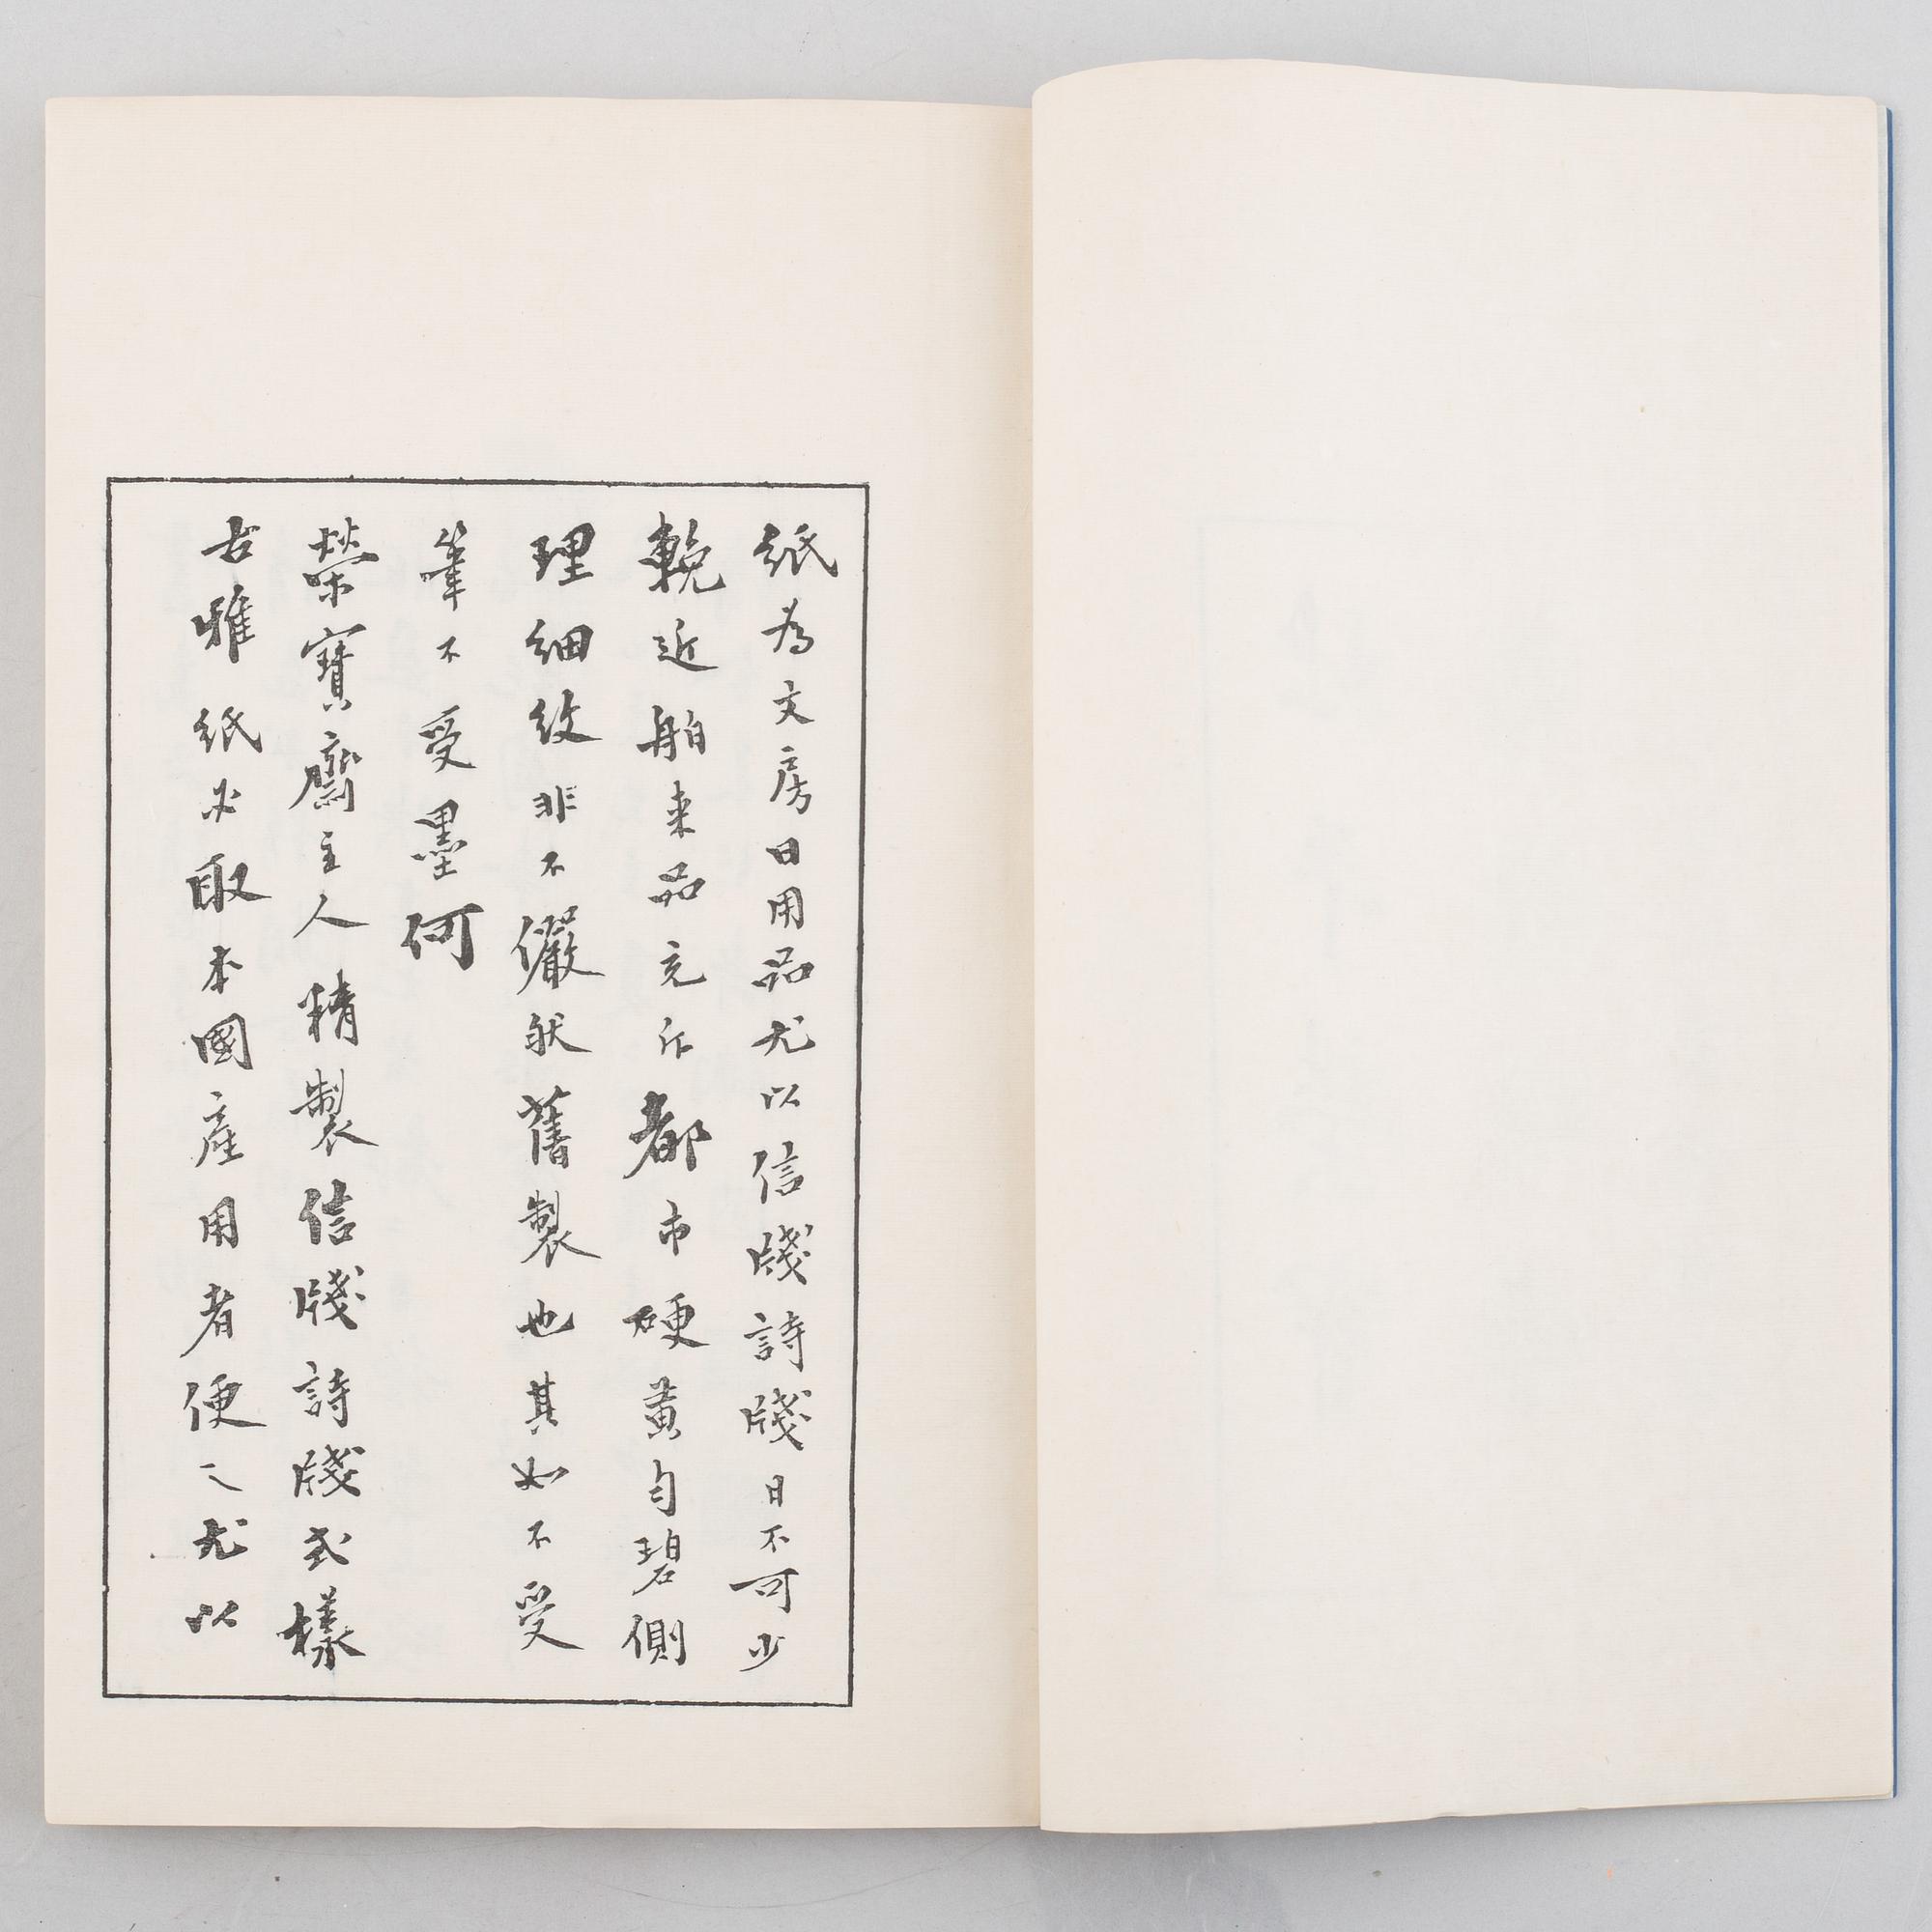 紙為文房日用品尤以信牋詩牋日不可少
輓近舶来品充斥都市硬黄勻碧側
理細紋非不儼然舊製也其如不受
筆不受墨何
榮寶齋主人精製信牋詩牋式樣
古雅紙必取本國產用者便之尤以